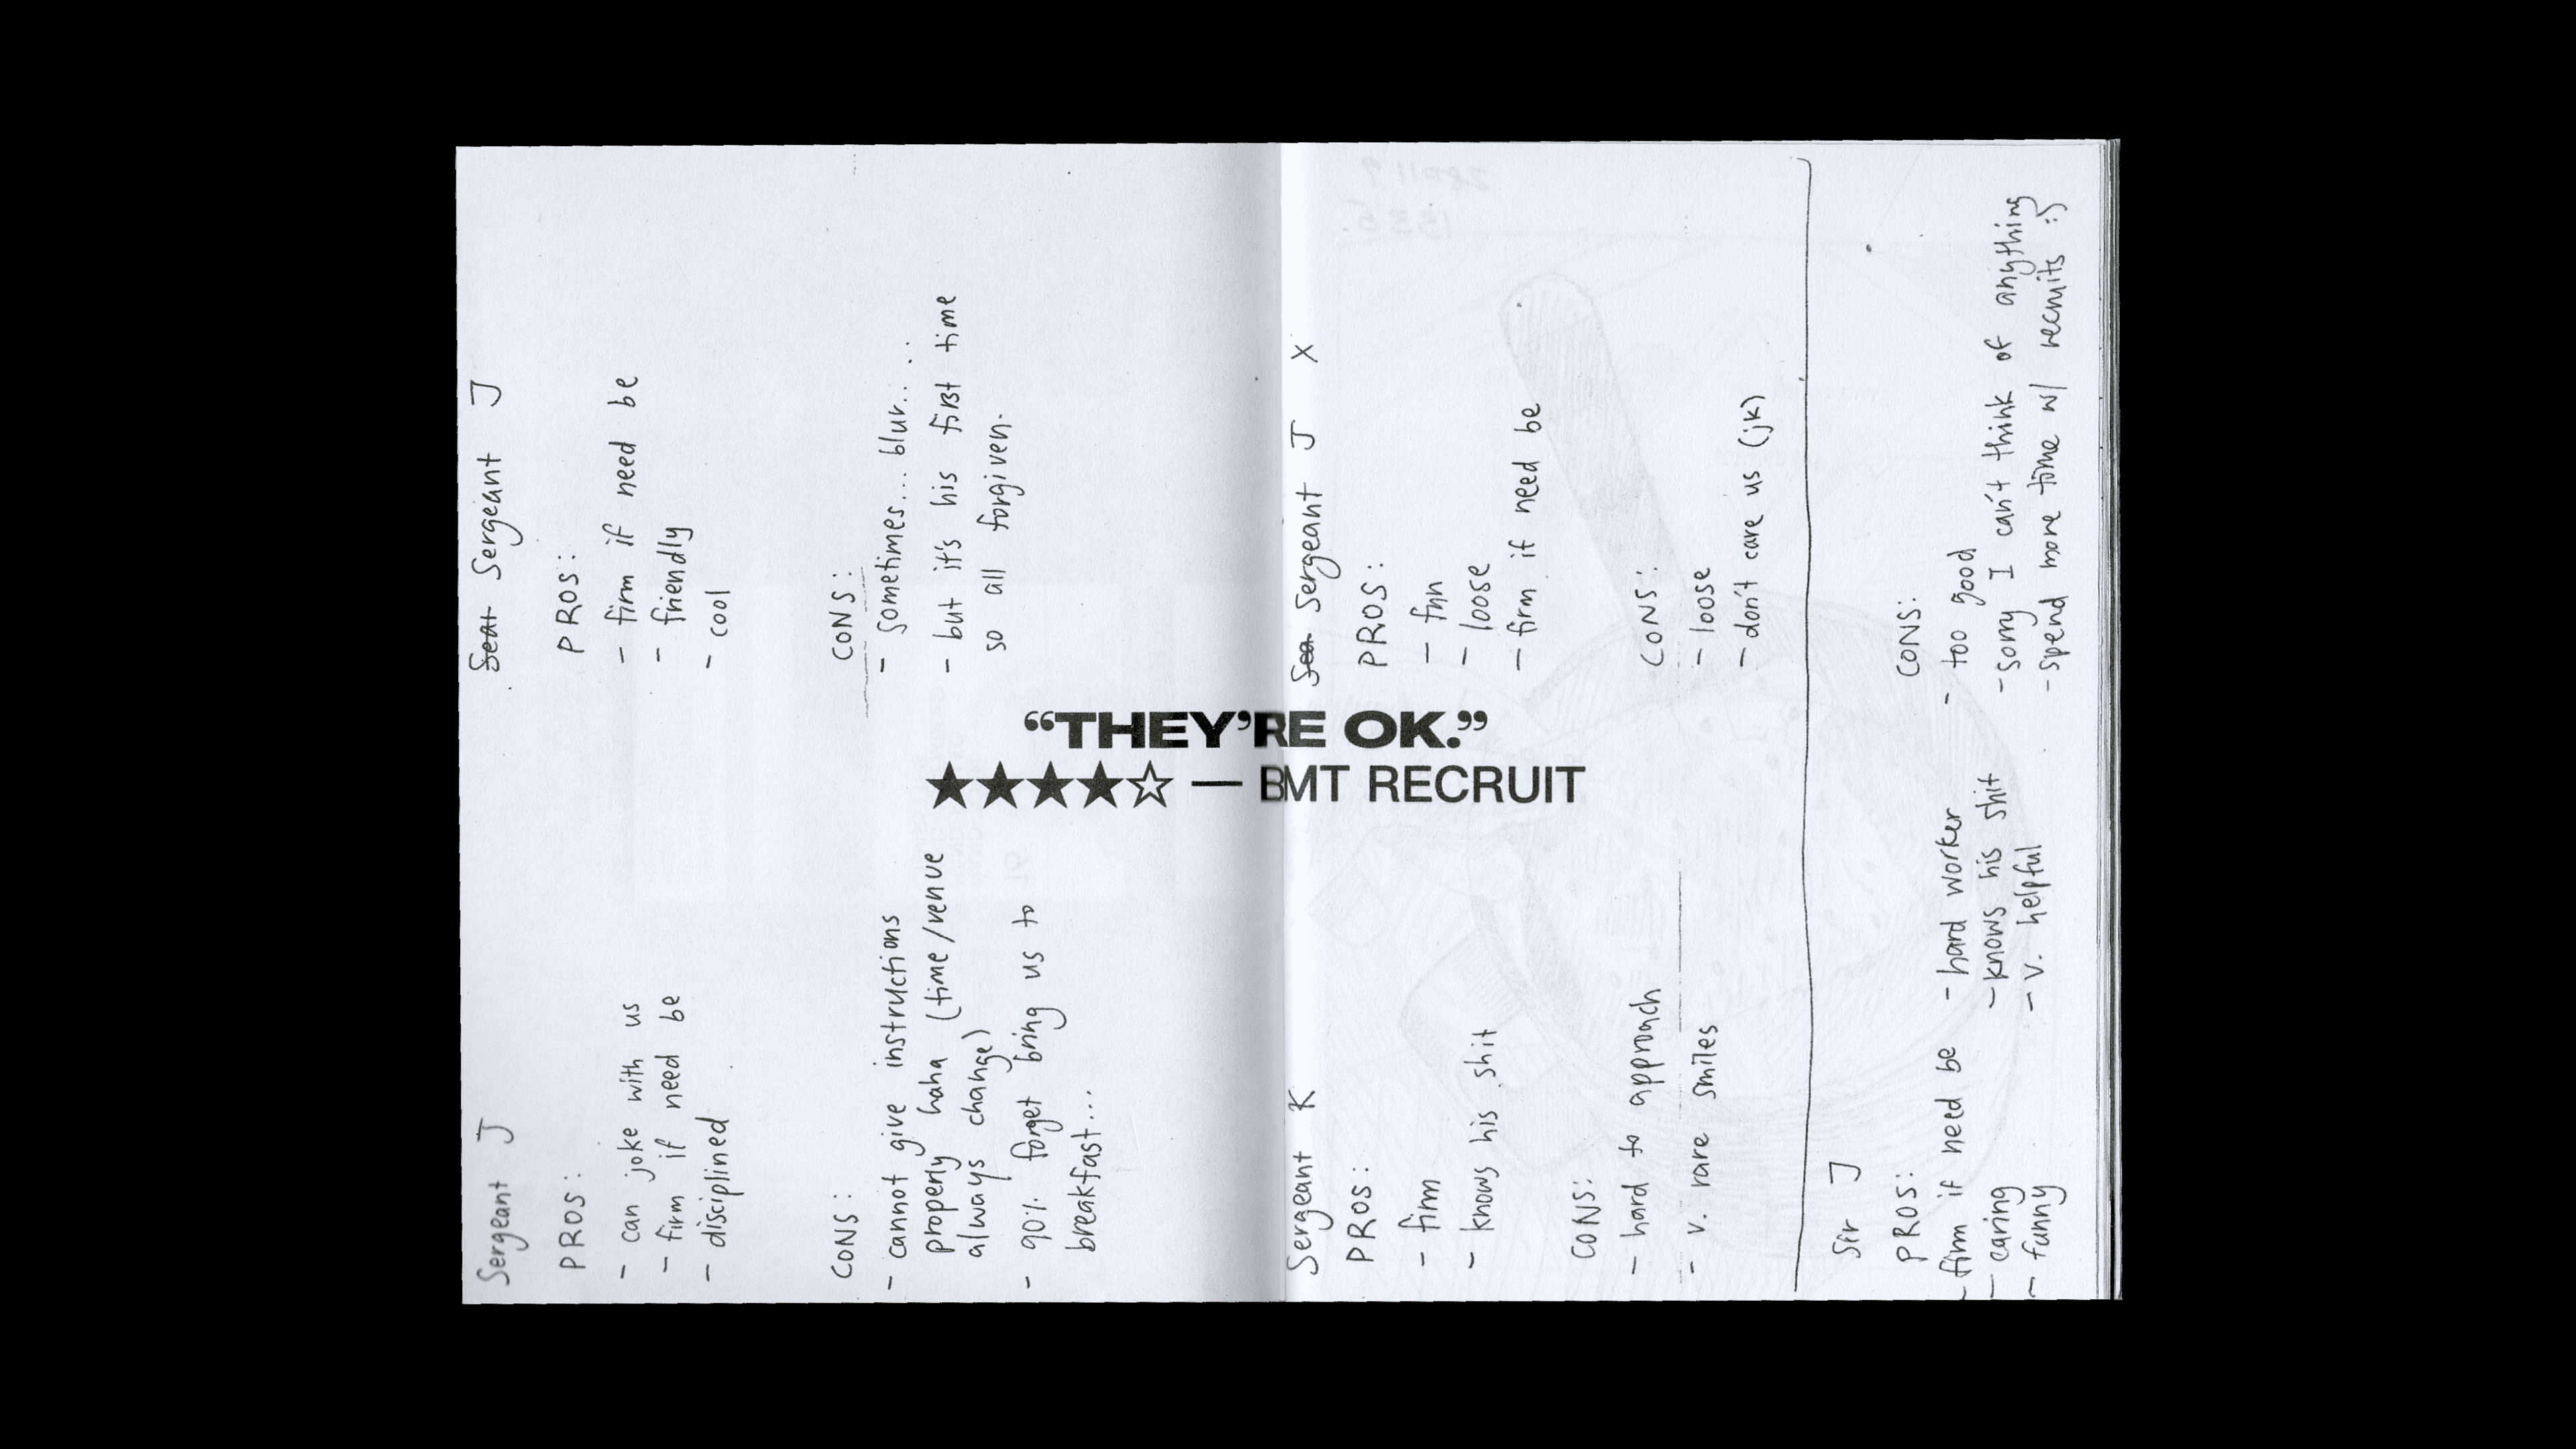 Sergeant J
PROS:
- can joke with us
- firm if need be
- disciplined
CONS:
- cannot give instructions
properly haha (time/venue
always change)
- 90% forget bring us to
breakfast...
Seat Sergeant J
PROS:
- firm if need be
- friendly
- cool
CONS:
- sometimes... blur.....
- but it's his first time
so all forgiven.
“THEY’RE OK.”
★★★★☆ — BMT RECRUIT
Sergeant K
PROS:
- firm
- knows his shit
CONS:
- hard to approach
- v. rare smiles
Sea Sergeant J X
PROS:
- fun
- loose
- firm if need be
CONS:
- loose
- don't care us (jk)
Sir J
PROS:
- firm if need be
- caring
- funny
- hard worker
- knows his shit
- v. helpful
CONS:
- too good
- sorry I can't think of anything
- spend more time w/ recruits :)